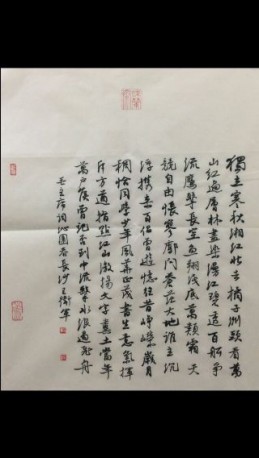 獨立寒秋湘江北去橘子洲頭看萬
山紅遍層林盡染漫江碧透百舸爭
流鷹擊長空魚翔淺底萬類霜天
競自由悵寥廓問蒼茫大地誰主沉
浮攜來百侶曾遊憶往昔崢嶸歲月
稠恰同學少年風華正茂書生意氣揮
斥方遒指點江山激揚文字糞土當年
萬戶侯曾記否到中流擊水浪遏飛舟
毛主席詞沁園春長沙王衛軍